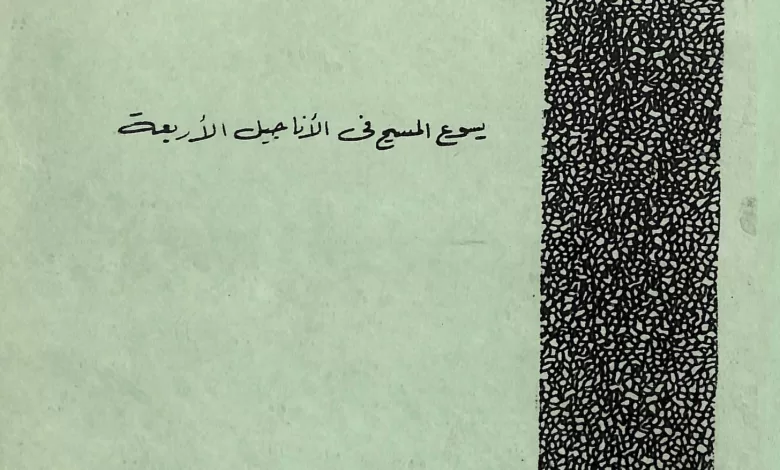 يسوع المسيح فى الأناجيل الأربعة